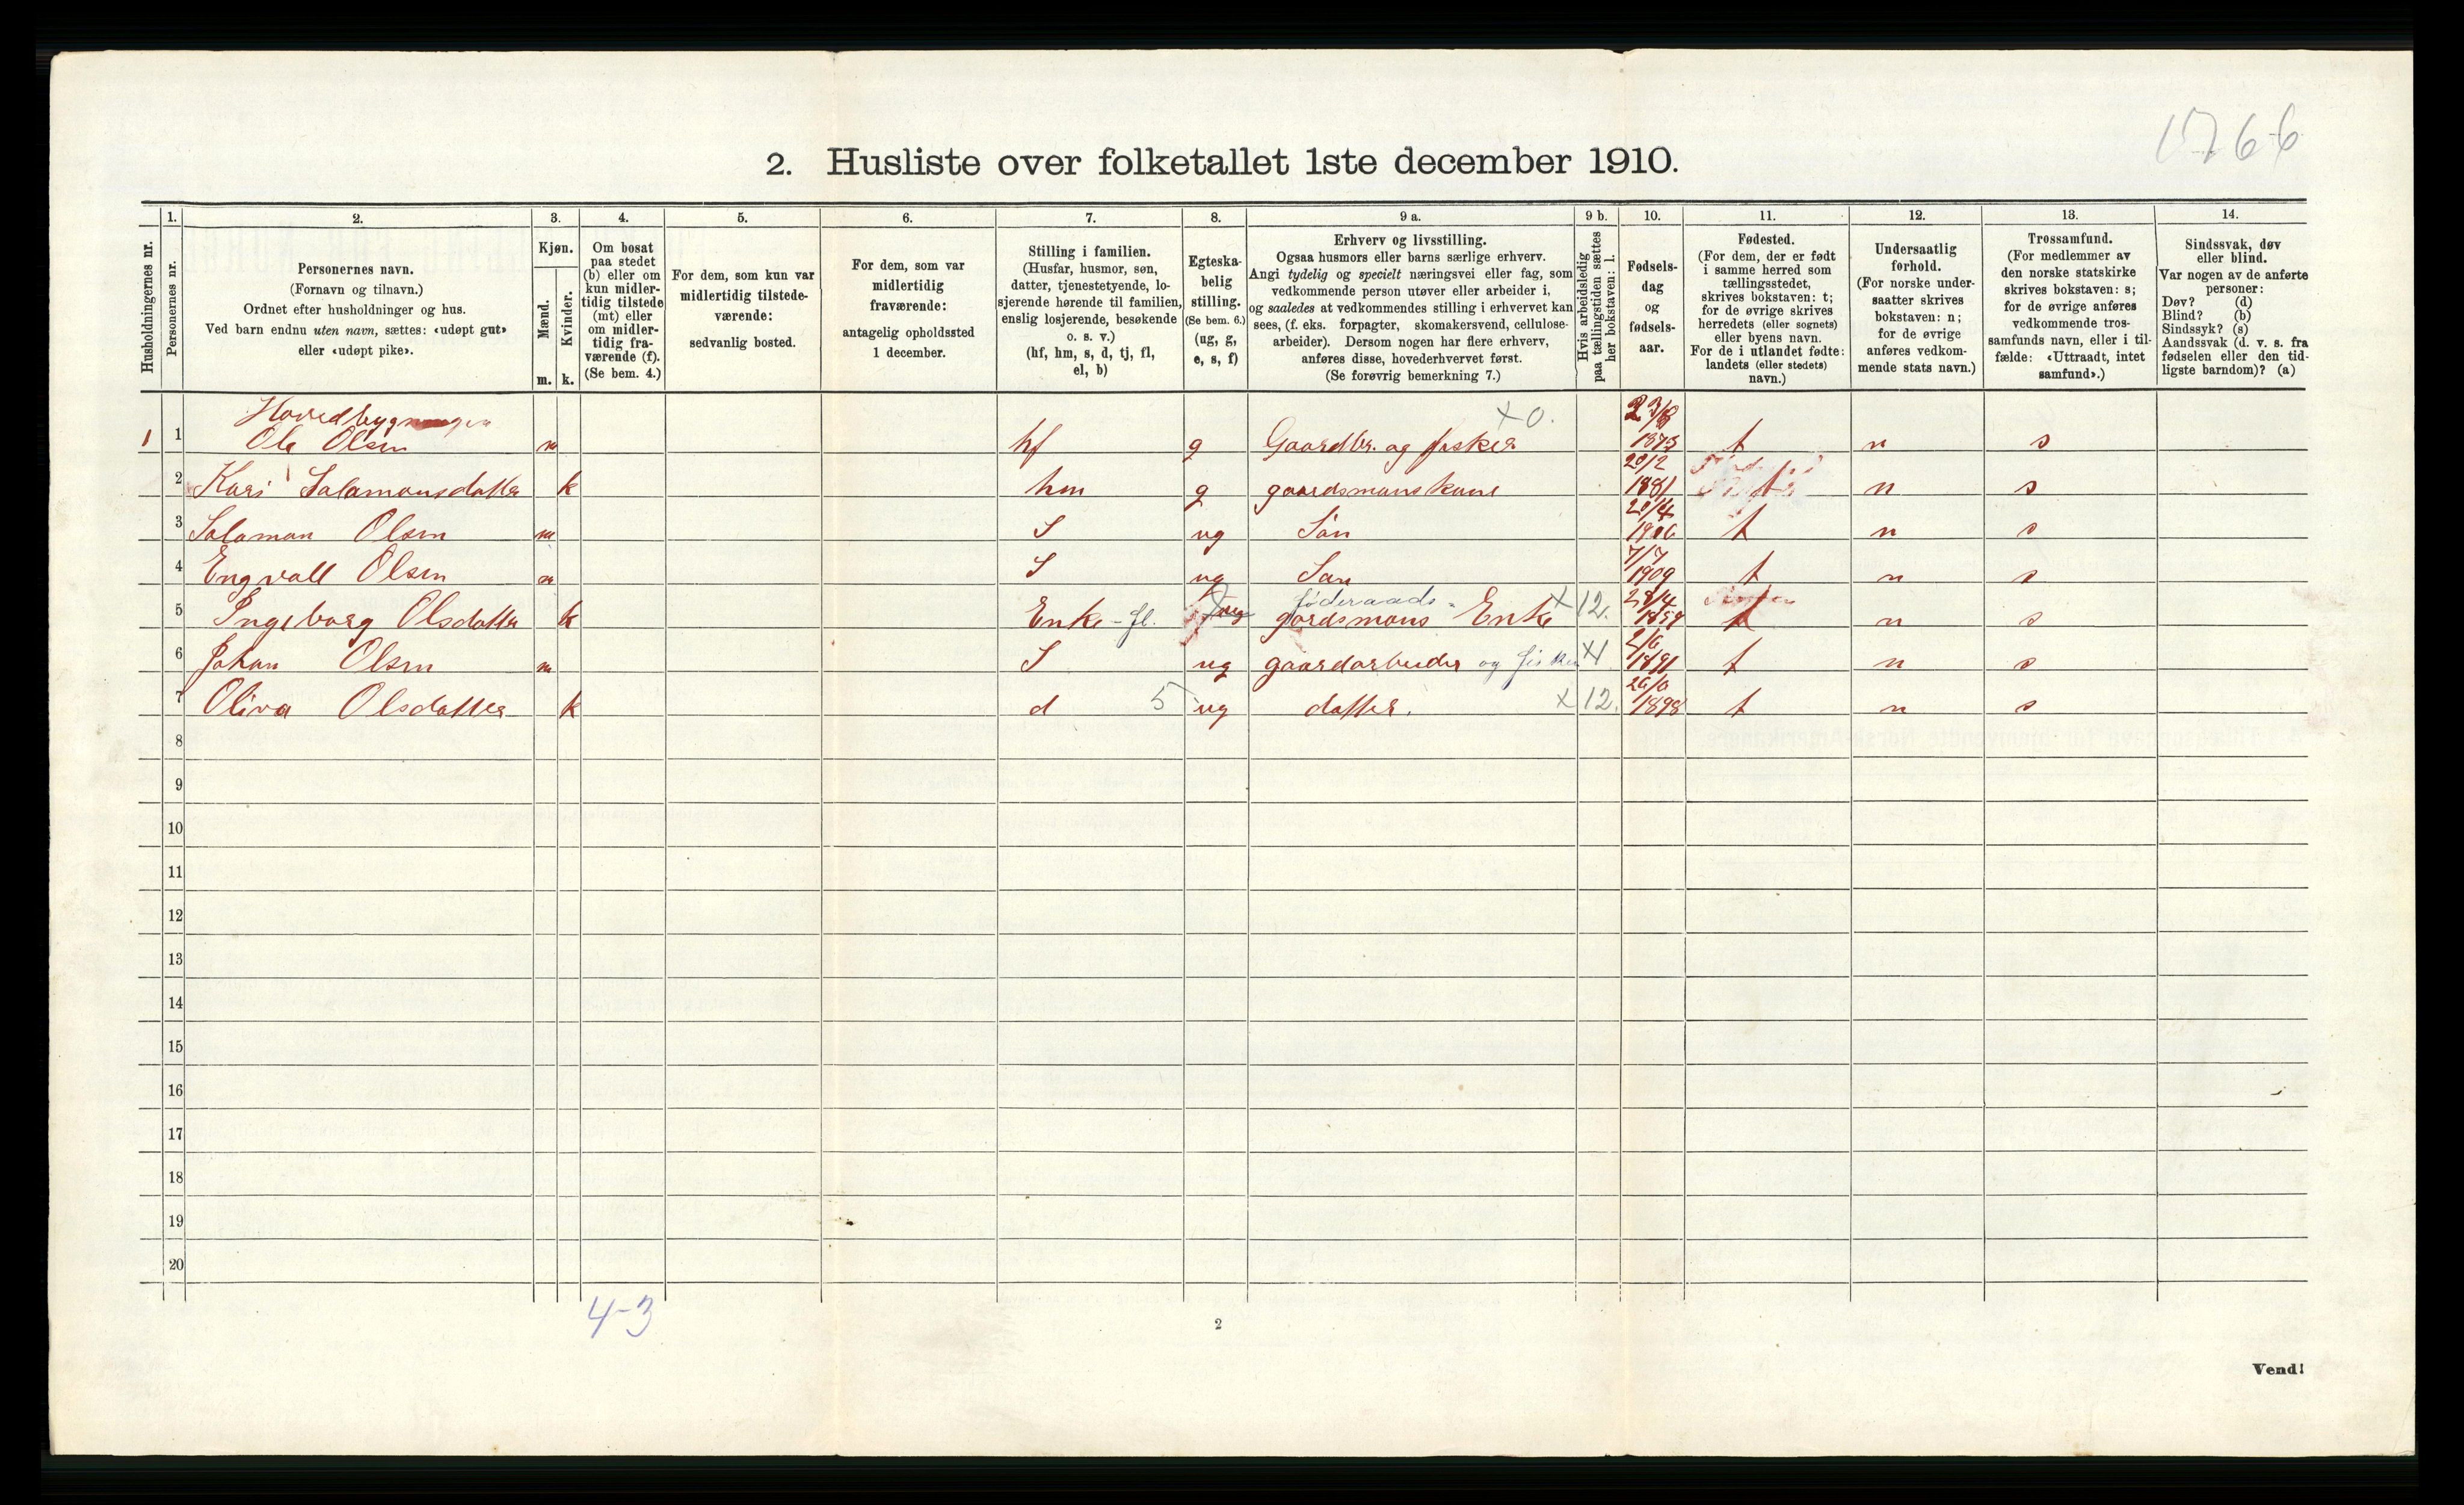 1766
2. Husliste over folketallet 1ste december 1910.
Husholdningernes nr.
1. Personernes nr.
2. Personernes navn. (Fornavn og tilnavn.) Ordnet efter husholdninger og hus. Ved barn endnu uten navn, sættes: «udøpt gut» eller «udøpt pike».
3. Kjøn. Mænd. m. Kvinder. k.
4. Om bosat paa stedet (b) eller om kun midlertidig tilstede (mt) eller om midlertidig fraværende (f). (Se bem. 4.)
5. For dem, som kun var midlertidig tilstedeværende: sedvanlig bosted.
6. For dem, som var midlertidig fraværende: antagelig opholdssted 1 december.
7. Stilling i familien. (Husfar, husmor, søn, datter, tjenestetyende, losjerende hørende til familien, enslig losjerende, besøkende o. s. v.) (hf, hm, s, d, tj, fl, el, b)
8. Egteskabelig stilling. (Se bem. 6.) (ug, g, e, s, f)
9 a. Erhverv og livsstilling. Ogsaa husmors eller barns særlige erhverv. Angi tydelig og specielt næringsvei eller fag, som vedkommende person utøver eller arbeider i, og saaledes at vedkommendes stilling i erhvervet kan sees, (f. eks. forpagter, skomakersvend, cellulosearbeider). Dersom nogen har flere erhverv, anføres disse, hovederhvervet først. (Se forøvrig bemerkning 7.)
9 b. Hvis arbeidsledig paa tællingstiden sættes her bokstaven: l.
10. Fødselsdag og fødselsaar.
11. Fødested. (For dem, der er født i samme herred som tællingsstedet, skrives bokstaven: t; for de øvrige skrives herredets (eller sognets) eller byens navn. For de i utlandet fødte: landets (eller stedets) navn.)
12. Undersaatlig forhold. (For norske undersaatter skrives bokstaven: n; for de øvrige anføres vedkommende stats navn.)
13. Trossamfund. (For medlemmer av den norske statskirke skrives bokstaven: s; for de øvrige anføres vedkommende trossamfunds navn, eller i tilfælde: «Uttraadt, intet samfund».)
14. Sindssvak, døv eller blind. Var nogen av de anførte personer: Døv? (d) Blind? (b) Sindssyk? (s) Aandssvak (d. v. s. fra fødselen eller den tidligste barndom)? (a)
Hovedbygningen
1 1 Ole Olsen m hf g Gaardbr. og fisker x0. 1873 t n s
2 Kari Salamonsdatter k hm g gaardsmans kone 20/2 1881 t n s
3 Salaman Olsen m S ug Sön 20/4 1906 t n s
4 Engvall Olsen m S ug Sön 7/7 1909 t n s
5 Ingeborg Olsdatter k Enke - fl. föderaads- gårdsmans Enke x12. 28/4 t n s
6 Johan Olsen m S ug gaardarbeider og fisker x1 2/6 1891 t n s
7 Oliva Olsdatter k d 5 ug datter. x12. 1898 t n s
8
9
10
11
12
13
14
15
16
17
18
19
20
4-3
2
Vend!